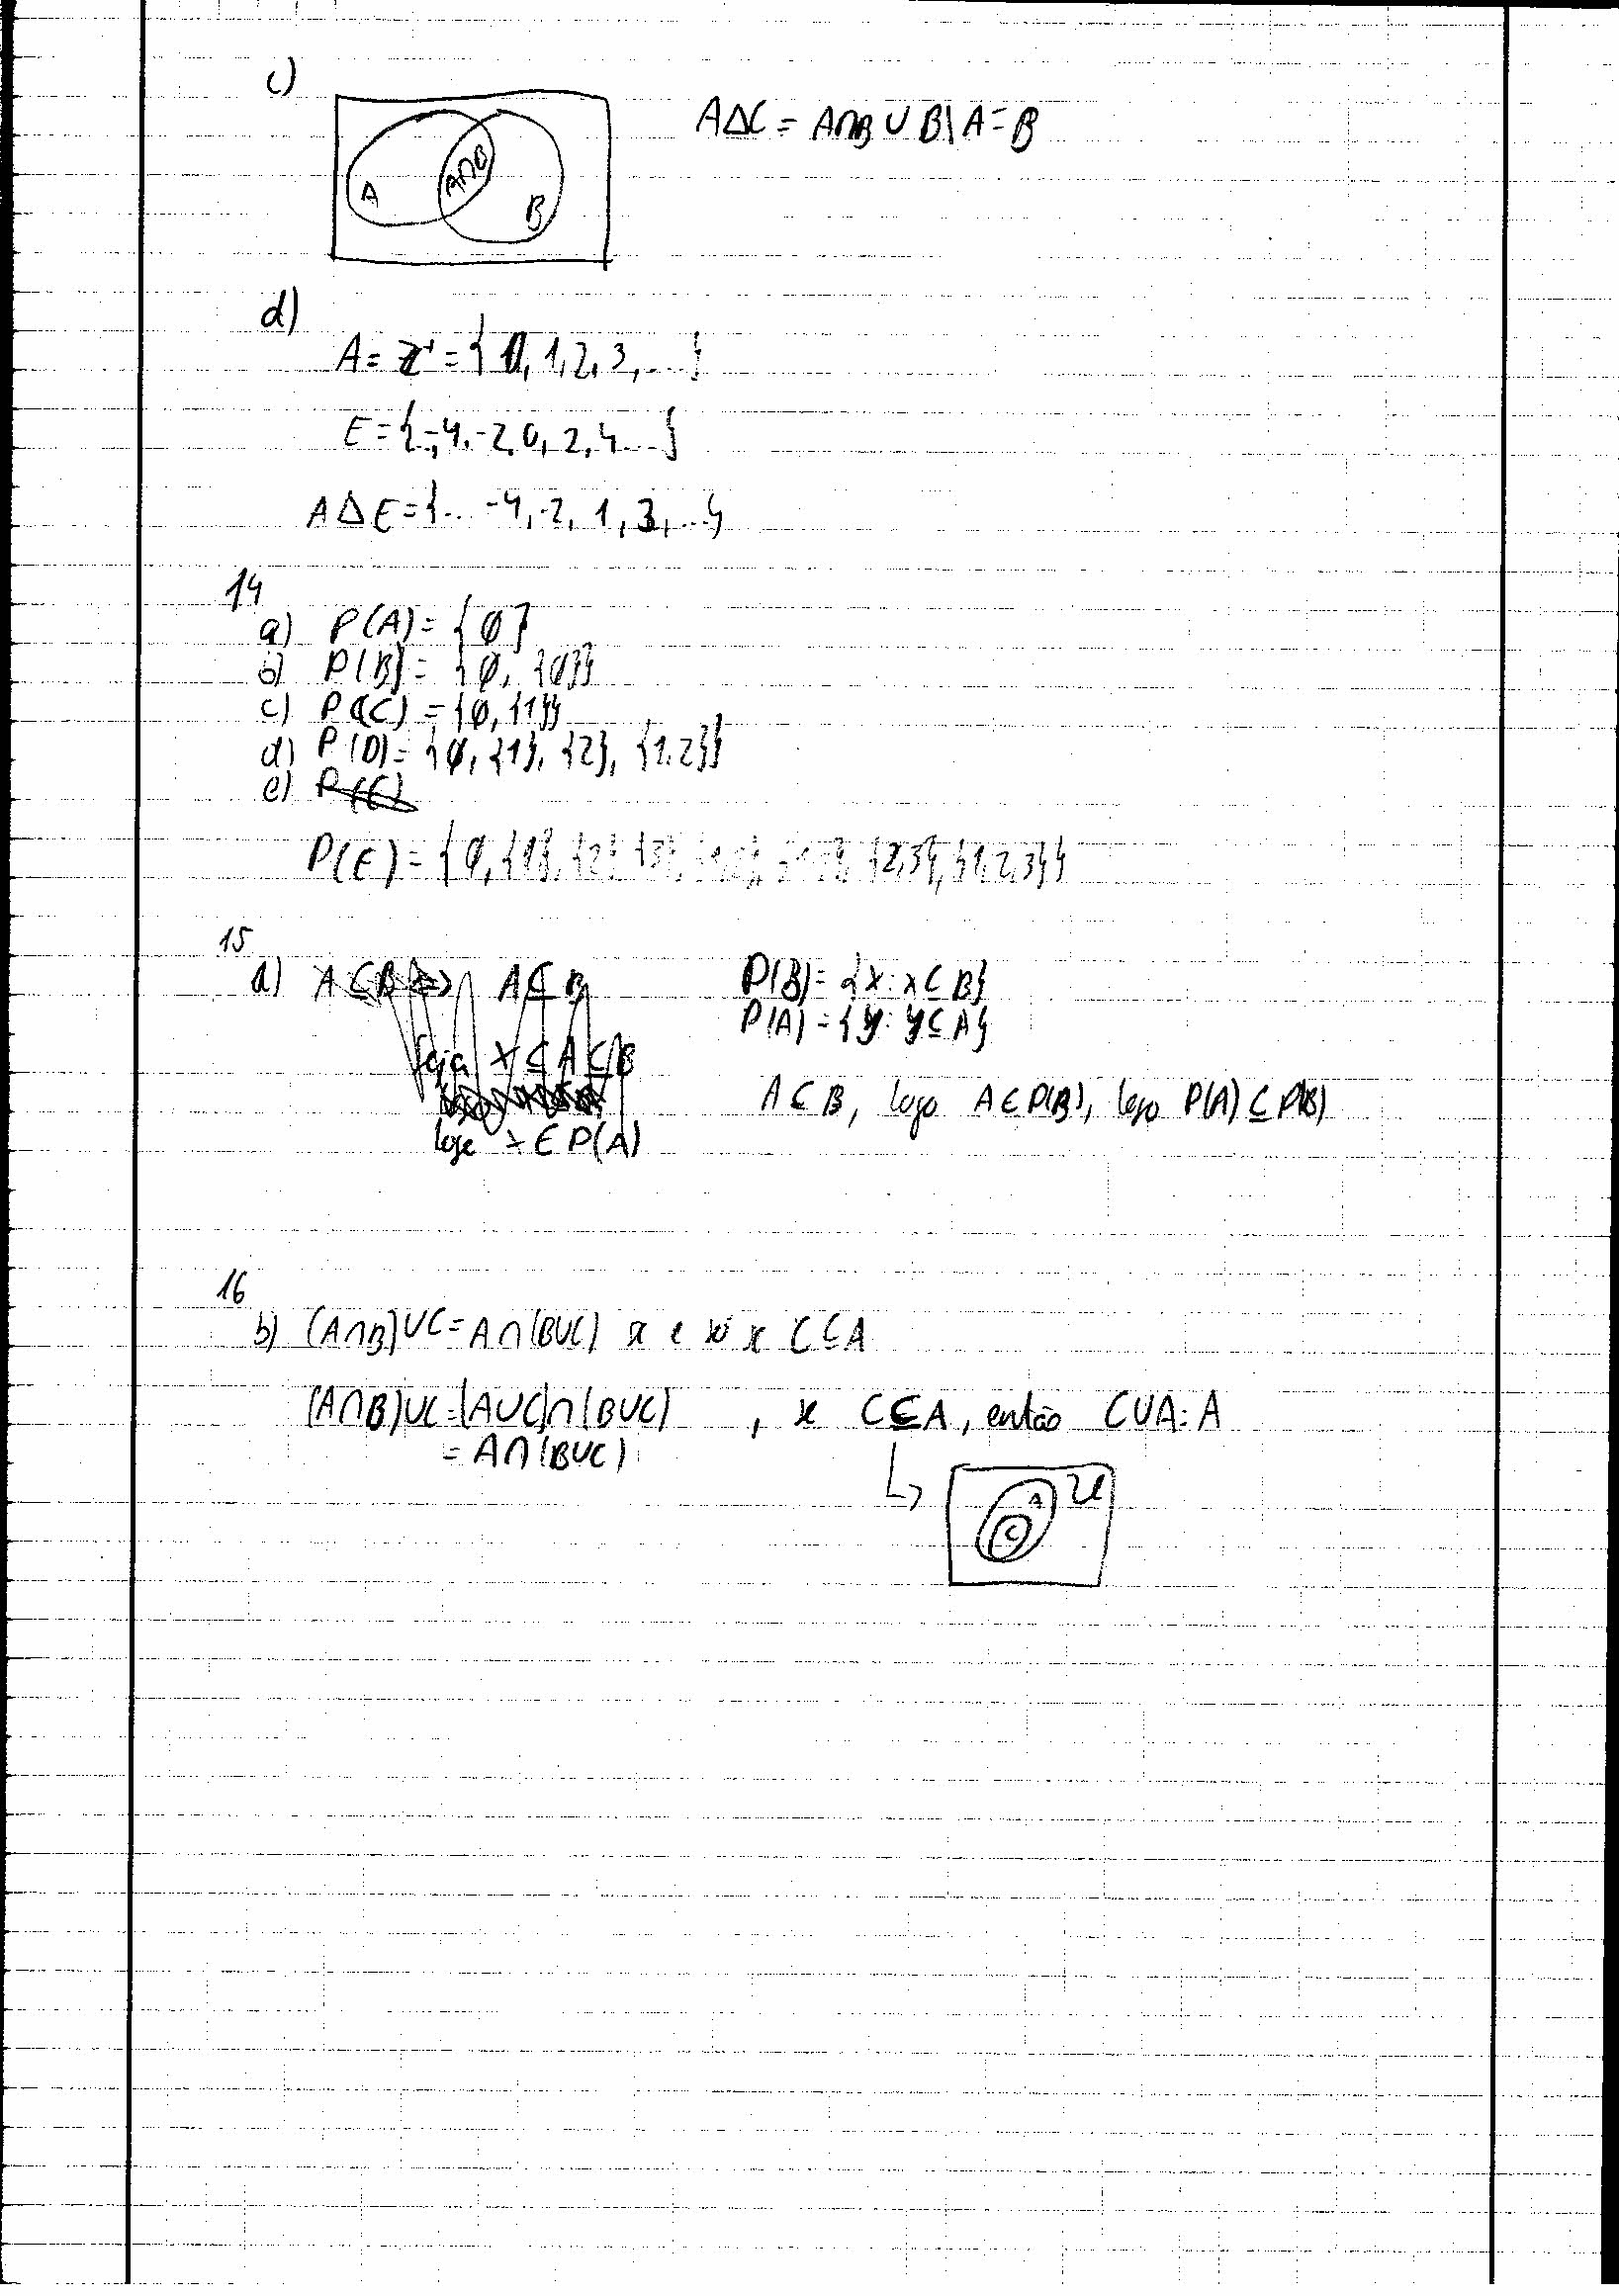 c)
A A∩B B
A∆C = A∩B ∪ B\A = B
d)
A = ℤ⁺ = { 0, 1, 2, 3, ... }
E = {..., -4, -2, 0, 2, 4 ... }
A ∆ E = {... -4, -2, 1, 3, ...}
14
a) P(A) = { ∅ }
b) P(B) = { ∅, {∅}}
c) P(C) = {∅, {1}}
d) P(D) = {∅, {1}, {2}, {1,2}}
e) P(E)
P(E) = { ∅, {1}, {2}, {3}, {1,2}, {1,3}, {2,3}, {1,2,3}}
15
a) A ⊆ B ⇔ A ⊆ B
Seja x ⊆ A ⊆ B
logo x ∈ P(A)
P(B) = {x : x ⊆ B}
P(A) = {y : y ⊆ A}
A ⊂ B, logo A ∈ P(B), logo P(A) ⊆ P(B)
16
b) (A∩B) ∪ C = A ∩ (B∪C) se e só se C ⊆ A
(A∩B)∪C = (A∪C)∩(B∪C) , se C ⊆ A, então C∪A = A
= A∩(B∪C)
A U
C